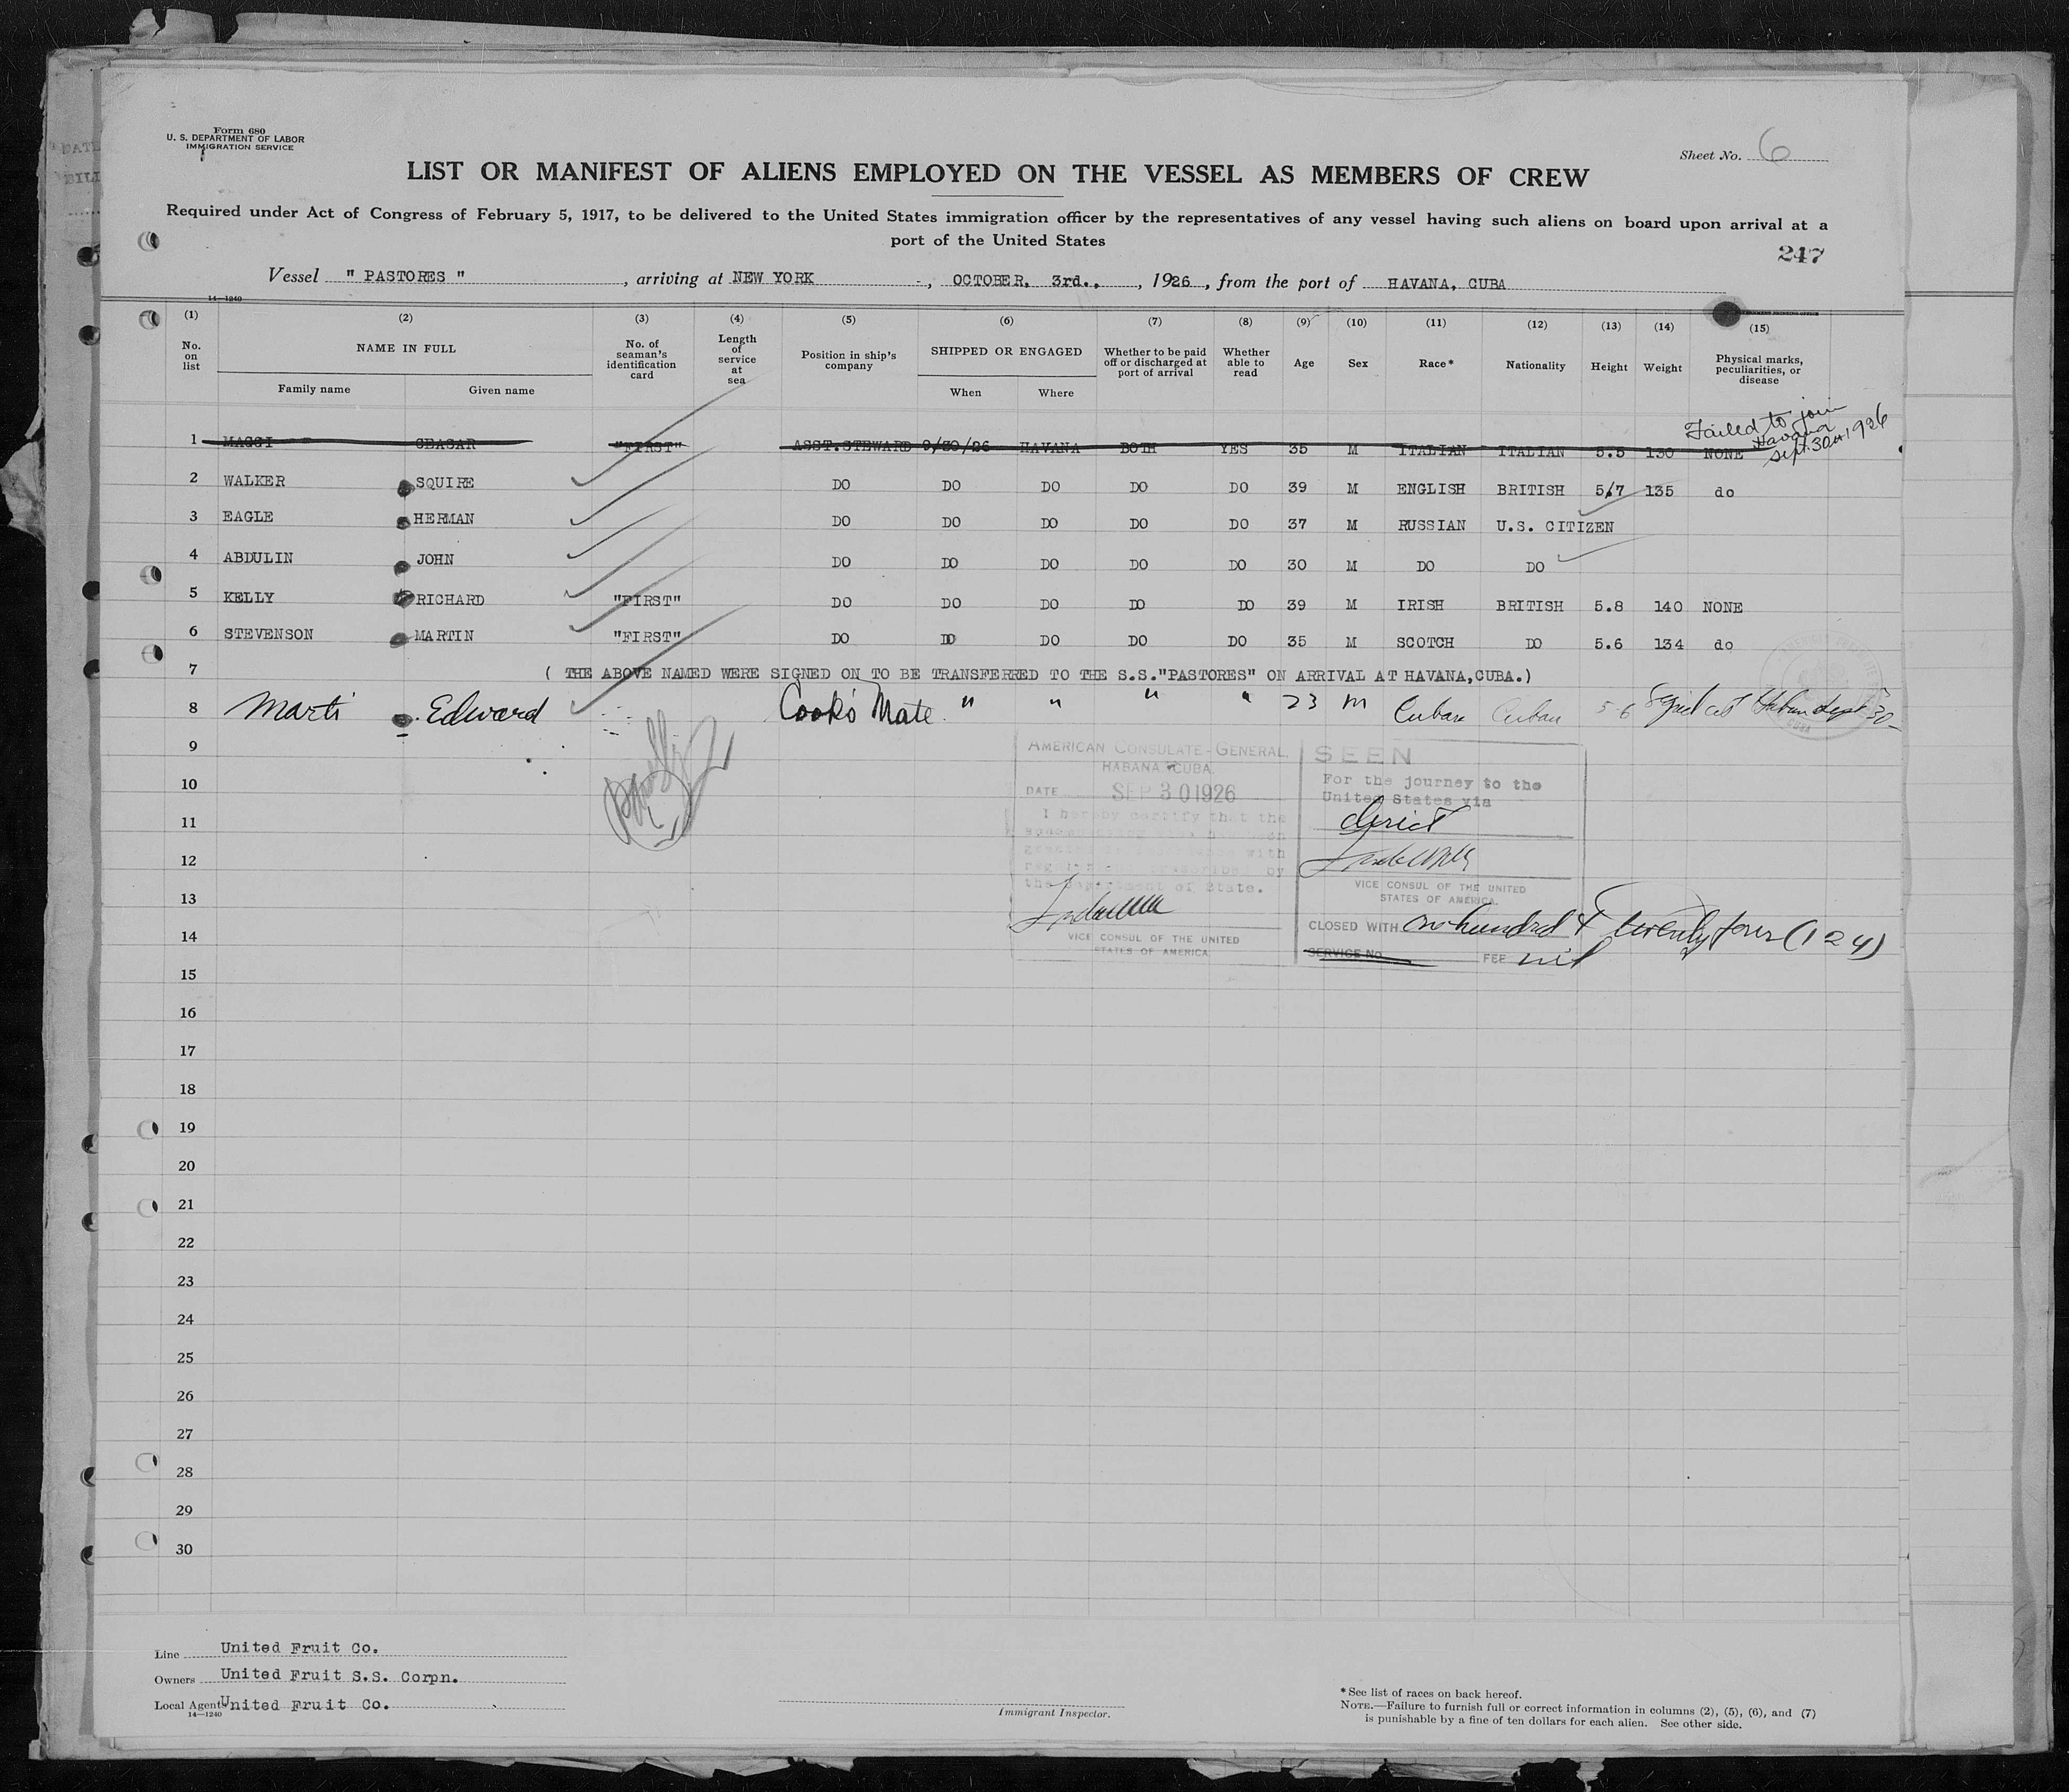 Form 680
U. S. DEPARTMENT OF LABOR
IMMIGRATION SERVICE
Sheet No. 6
LIST OR MANIFEST OF ALIENS EMPLOYED ON THE VESSEL AS MEMBERS OF CREW
Required under Act of Congress of February 5, 1917, to be delivered to the United States immigration officer by the representatives of any vessel having such aliens on board upon arrival at a
port of the United States
247
Vessel " PASTORES ", arriving at NEW YORK, OCTOBER, 3rd., 1926, from the port of HAVANA, CUBA
14—1240
(1) (2) (3) (4) (5) (6) (7) (8) (9) (10) (11) (12) (13) (14) (15)
No. on list NAME IN FULL No. of seaman's identification card Length of service at sea Position in ship's company SHIPPED OR ENGAGED Whether to be paid off or discharged at port of arrival Whether able to read Age Sex Race* Nationality Height Weight Physical marks, peculiarities, or disease
Family name Given name When Where
Failed to join
Havana
Sept. 30th 1926
1 MAGGI CEASAR "FIRST" ASST.STEWARD 9/30/26 HAVANA BOTH YES 35 M ITALIAN ITALIAN 5.5 130 NONE
2 WALKER SQUIRE DO DO DO DO DO 39 M ENGLISH BRITISH 5.7 135 do
3 EAGLE HERMAN DO DO DO DO DO 37 M RUSSIAN U.S. CITIZEN
4 ABDULIN JOHN DO DO DO DO DO 30 M DO DO
5 KELLY RICHARD "FIRST" DO DO DO DO DO 39 M IRISH BRITISH 5.8 140 NONE
6 STEVENSON MARTIN "FIRST" DO DO DO DO DO 35 M SCOTCH DO 5.6 134 do
7 ( THE ABOVE NAMED WERE SIGNED ON TO BE TRANSFERRED TO THE S.S."PASTORES" ON ARRIVAL AT HAVANA,CUBA.)
8 Marti Edward Cook's Mate " " " " 23 M Cuban Cuban 5 6 Signed at Habana Sept 30
9
10
11
12
13
14
15
16
17
18
19
20
21
22
23
24
25
26
27
28
29
30
AMERICAN CONSULATE-GENERAL,
HABANA, CUBA.
DATE SEP 30 1926
I hereby certify that the
with
prescribed by
the Department of State.
VICE CONSUL OF THE UNITED
STATES OF AMERICA
SEEN
For the journey to the
United States via
direct
VICE CONSUL OF THE UNITED
STATES OF AMERICA.
CLOSED WITH one hundred & twenty four (124)
SERVICE NO. FEE nil
Line United Fruit Co.
Owners United Fruit S.S. Corpn.
Local Agents United Fruit Co.
14—1240
Immigrant Inspector.
* See list of races on back hereof.
NOTE.—Failure to furnish full or correct information in columns (2), (5), (6), and (7)
is punishable by a fine of ten dollars for each alien. See other side.